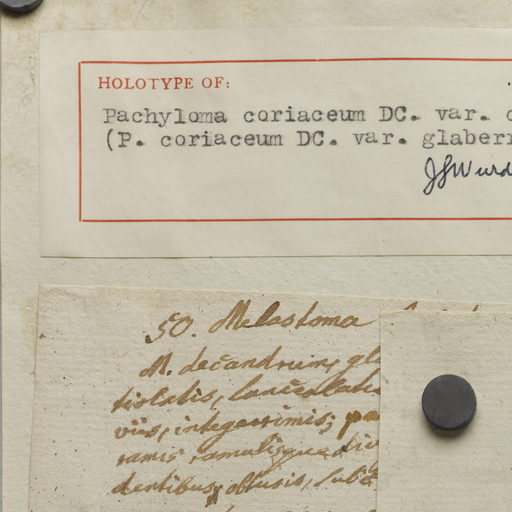 HOLOTYPE OF:
Pachyloma coriaceum DC. var. c
(P. coriaceum DC. var. glaberr
JJWurd
50. Melastoma
M. decandrum, gl
tiolatis, lanceolatis
viis, integerrimis; pa
ramis ramulisque dic
dentibus obtusis, sub